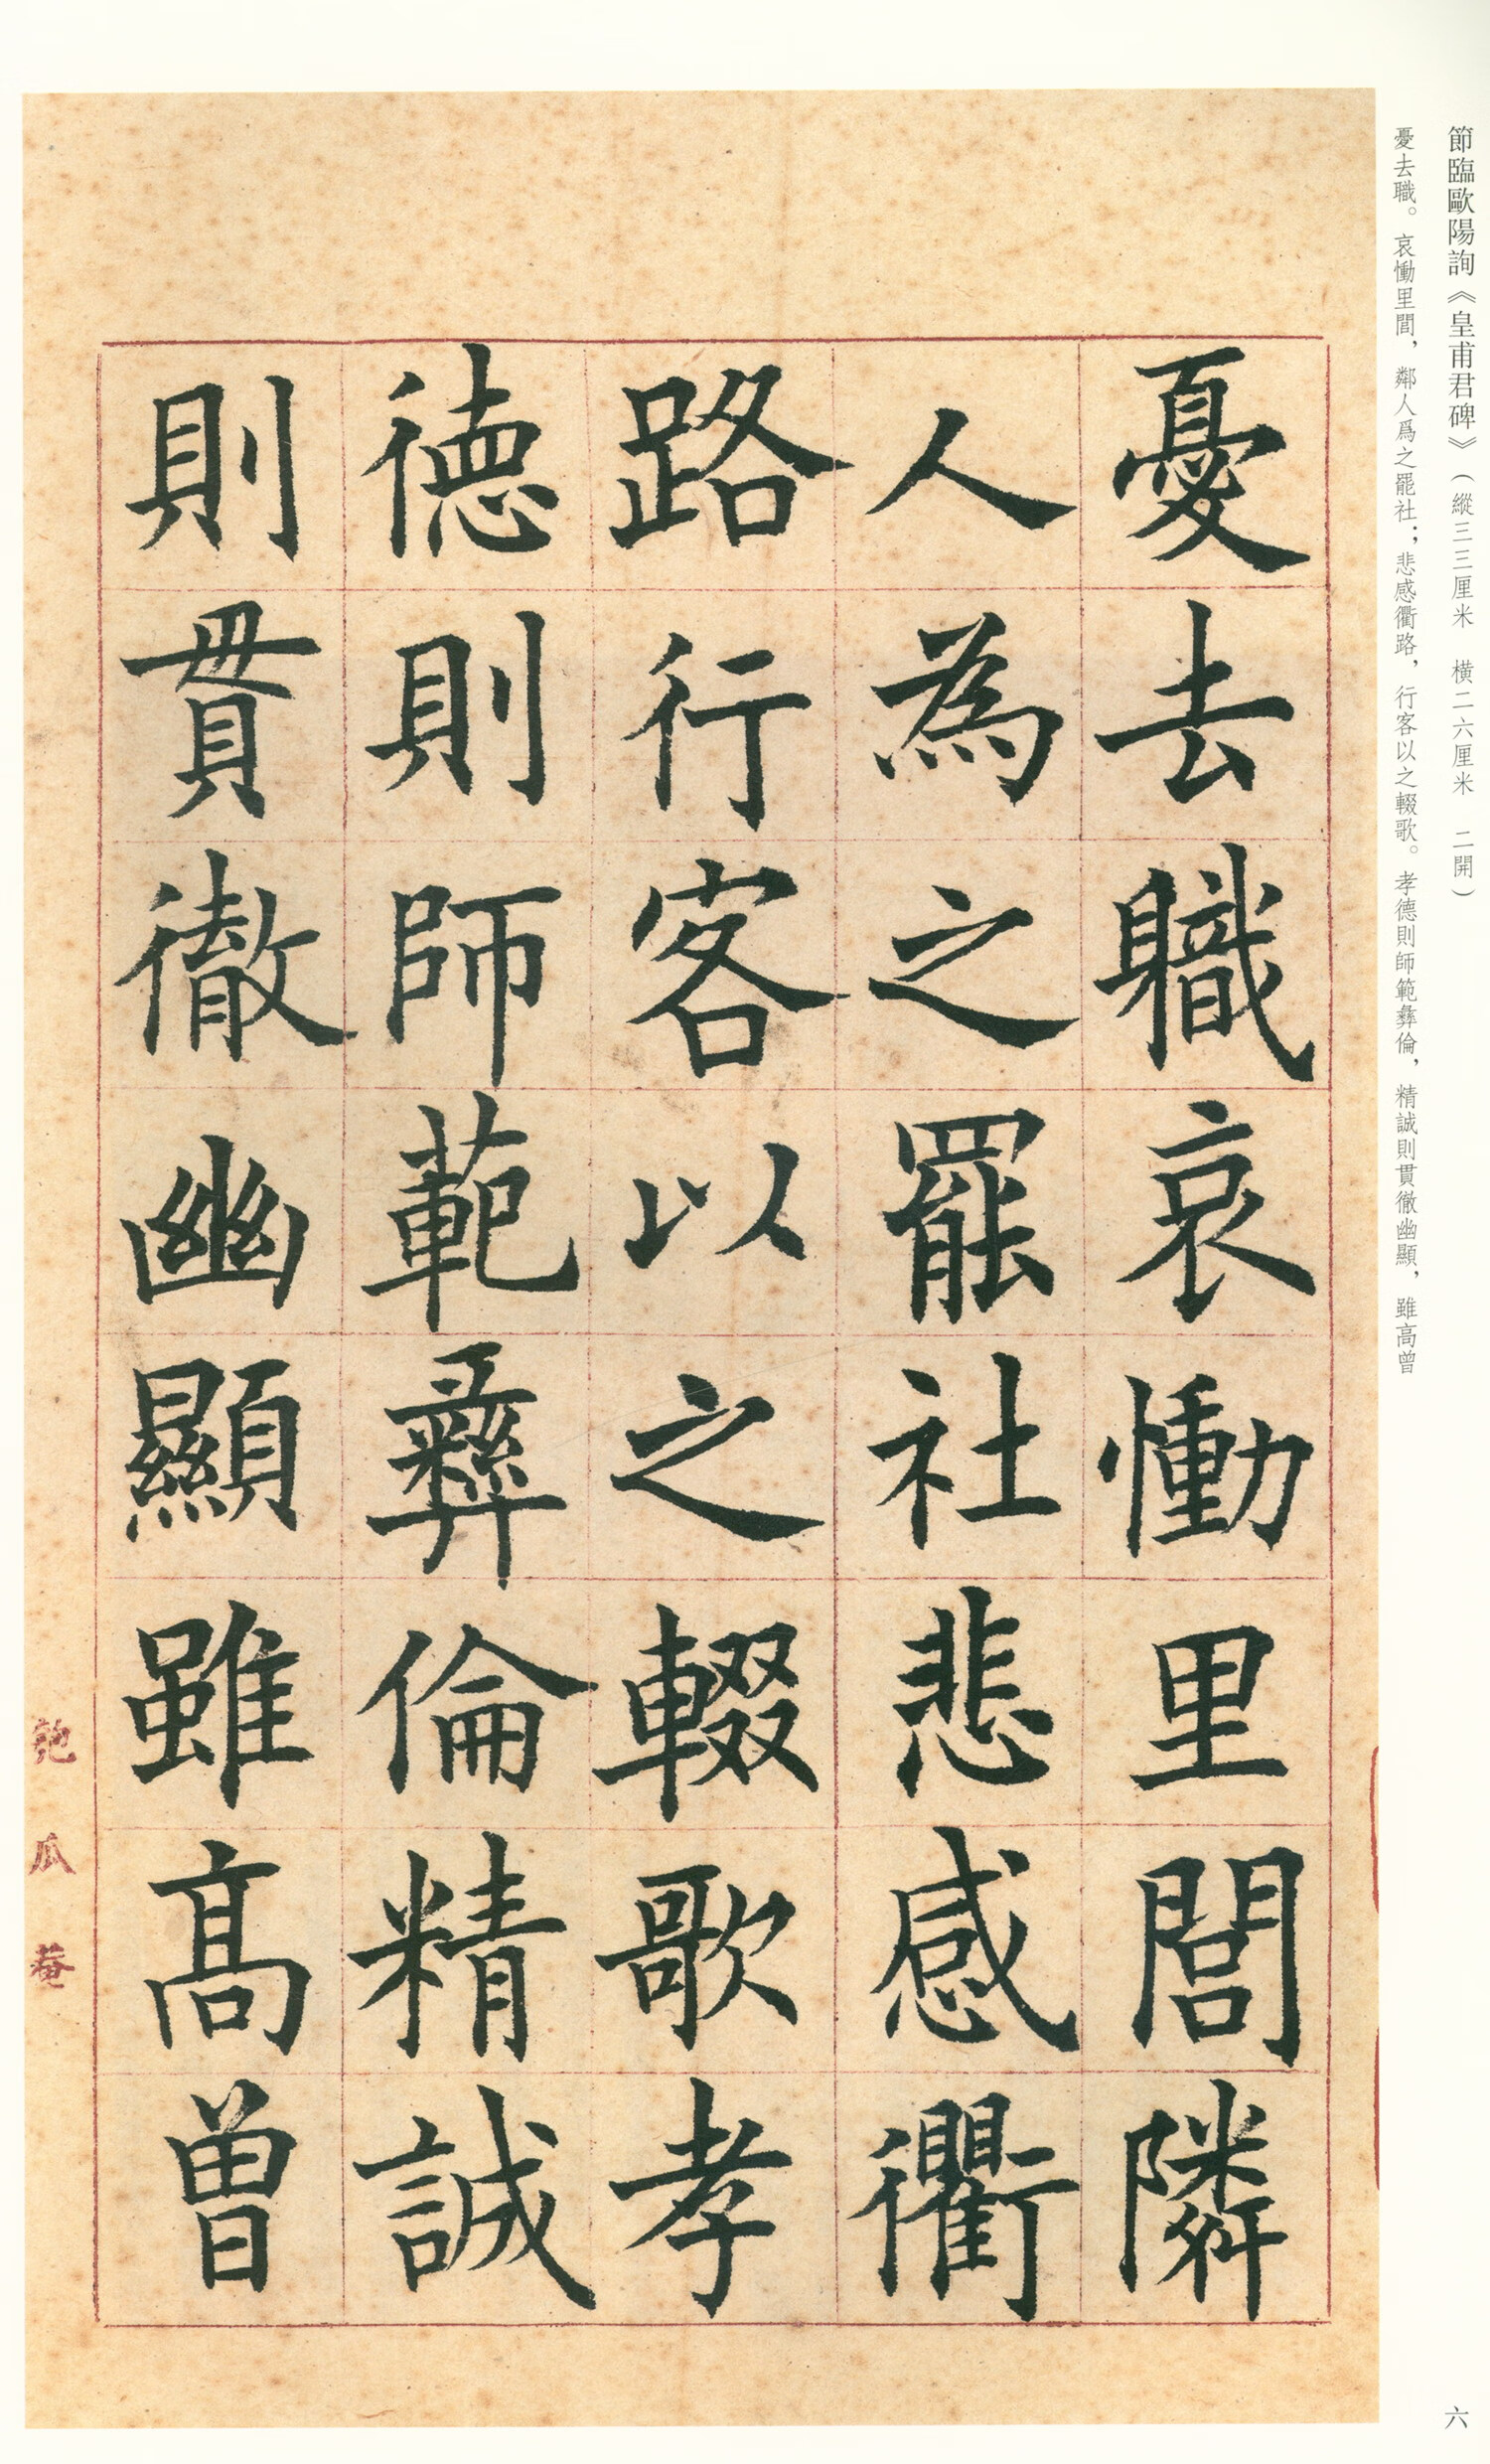 節臨歐陽詢《皇甫君碑》（縱三三厘米　橫二六厘米　二開）
憂去職。哀慟里閭，鄰人爲之罷社；悲感衢路，行客以之輟歌。孝德則師範彝倫，精誠則貫徹幽顯，雖高曾
憂去職哀慟里閭隣
人為之罷社悲感衢
路行客以之輟歌孝
德則師範彝倫精誠
則貫徹幽顯雖高曾
匏瓜菴
六